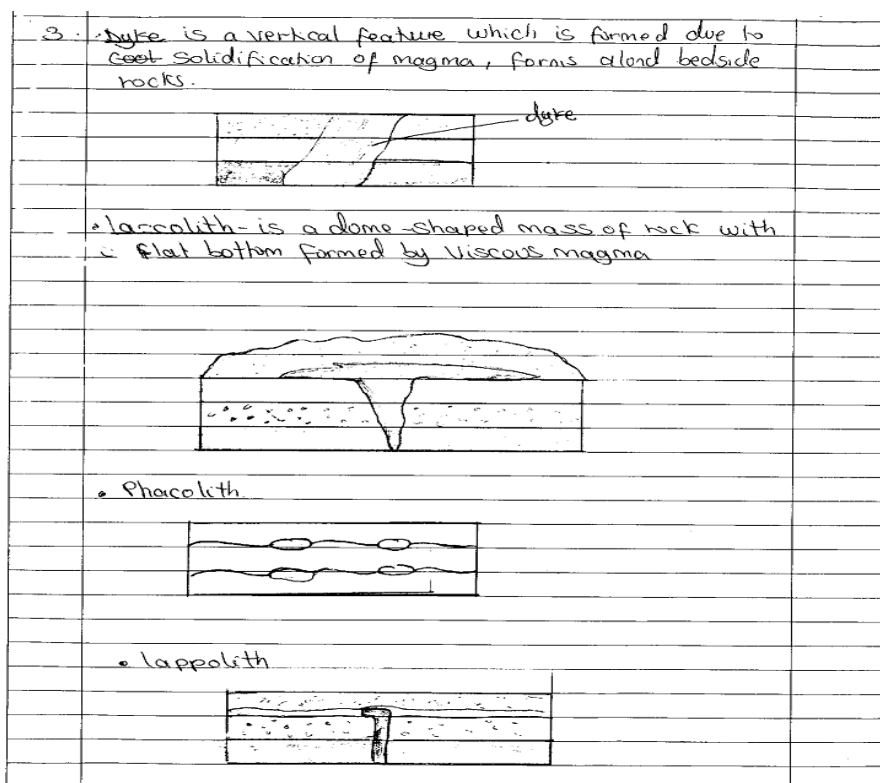 3. • Dyke is a vertical feature which is formed due to
Cool Solidification of magma, forms alond bedside
rocks.
dyke
• laccolith - is a dome-shaped mass of rock with
flat bottom formed by Viscous magma
• Phacolith
• lappolith